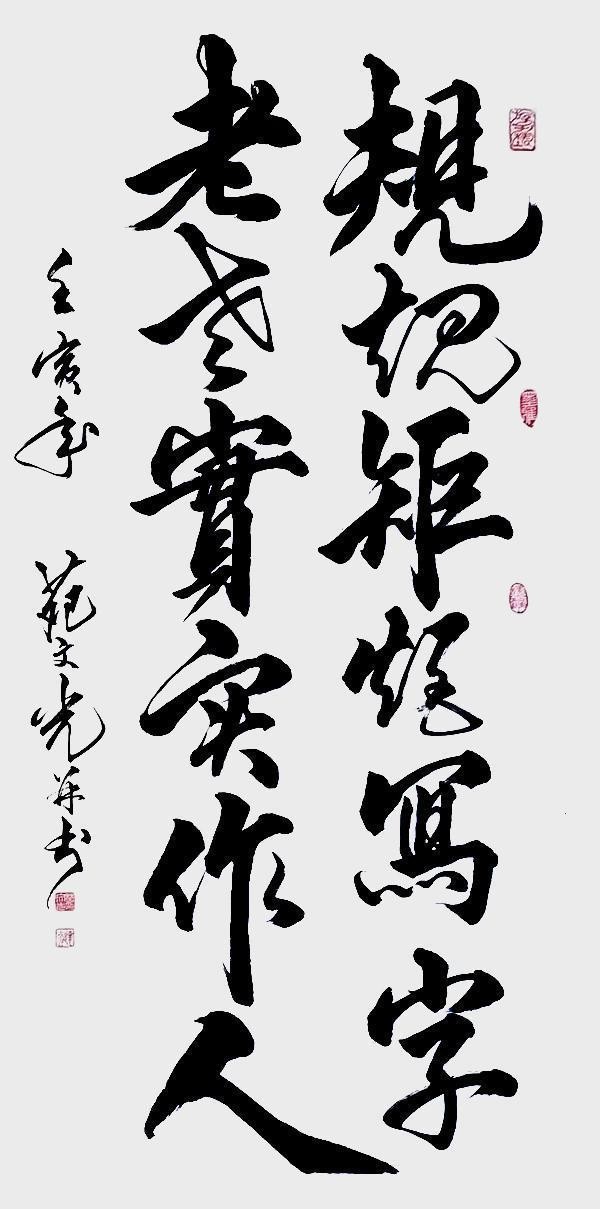 規规矩矩寫字
老老實实作人
壬寅年 范文光並书